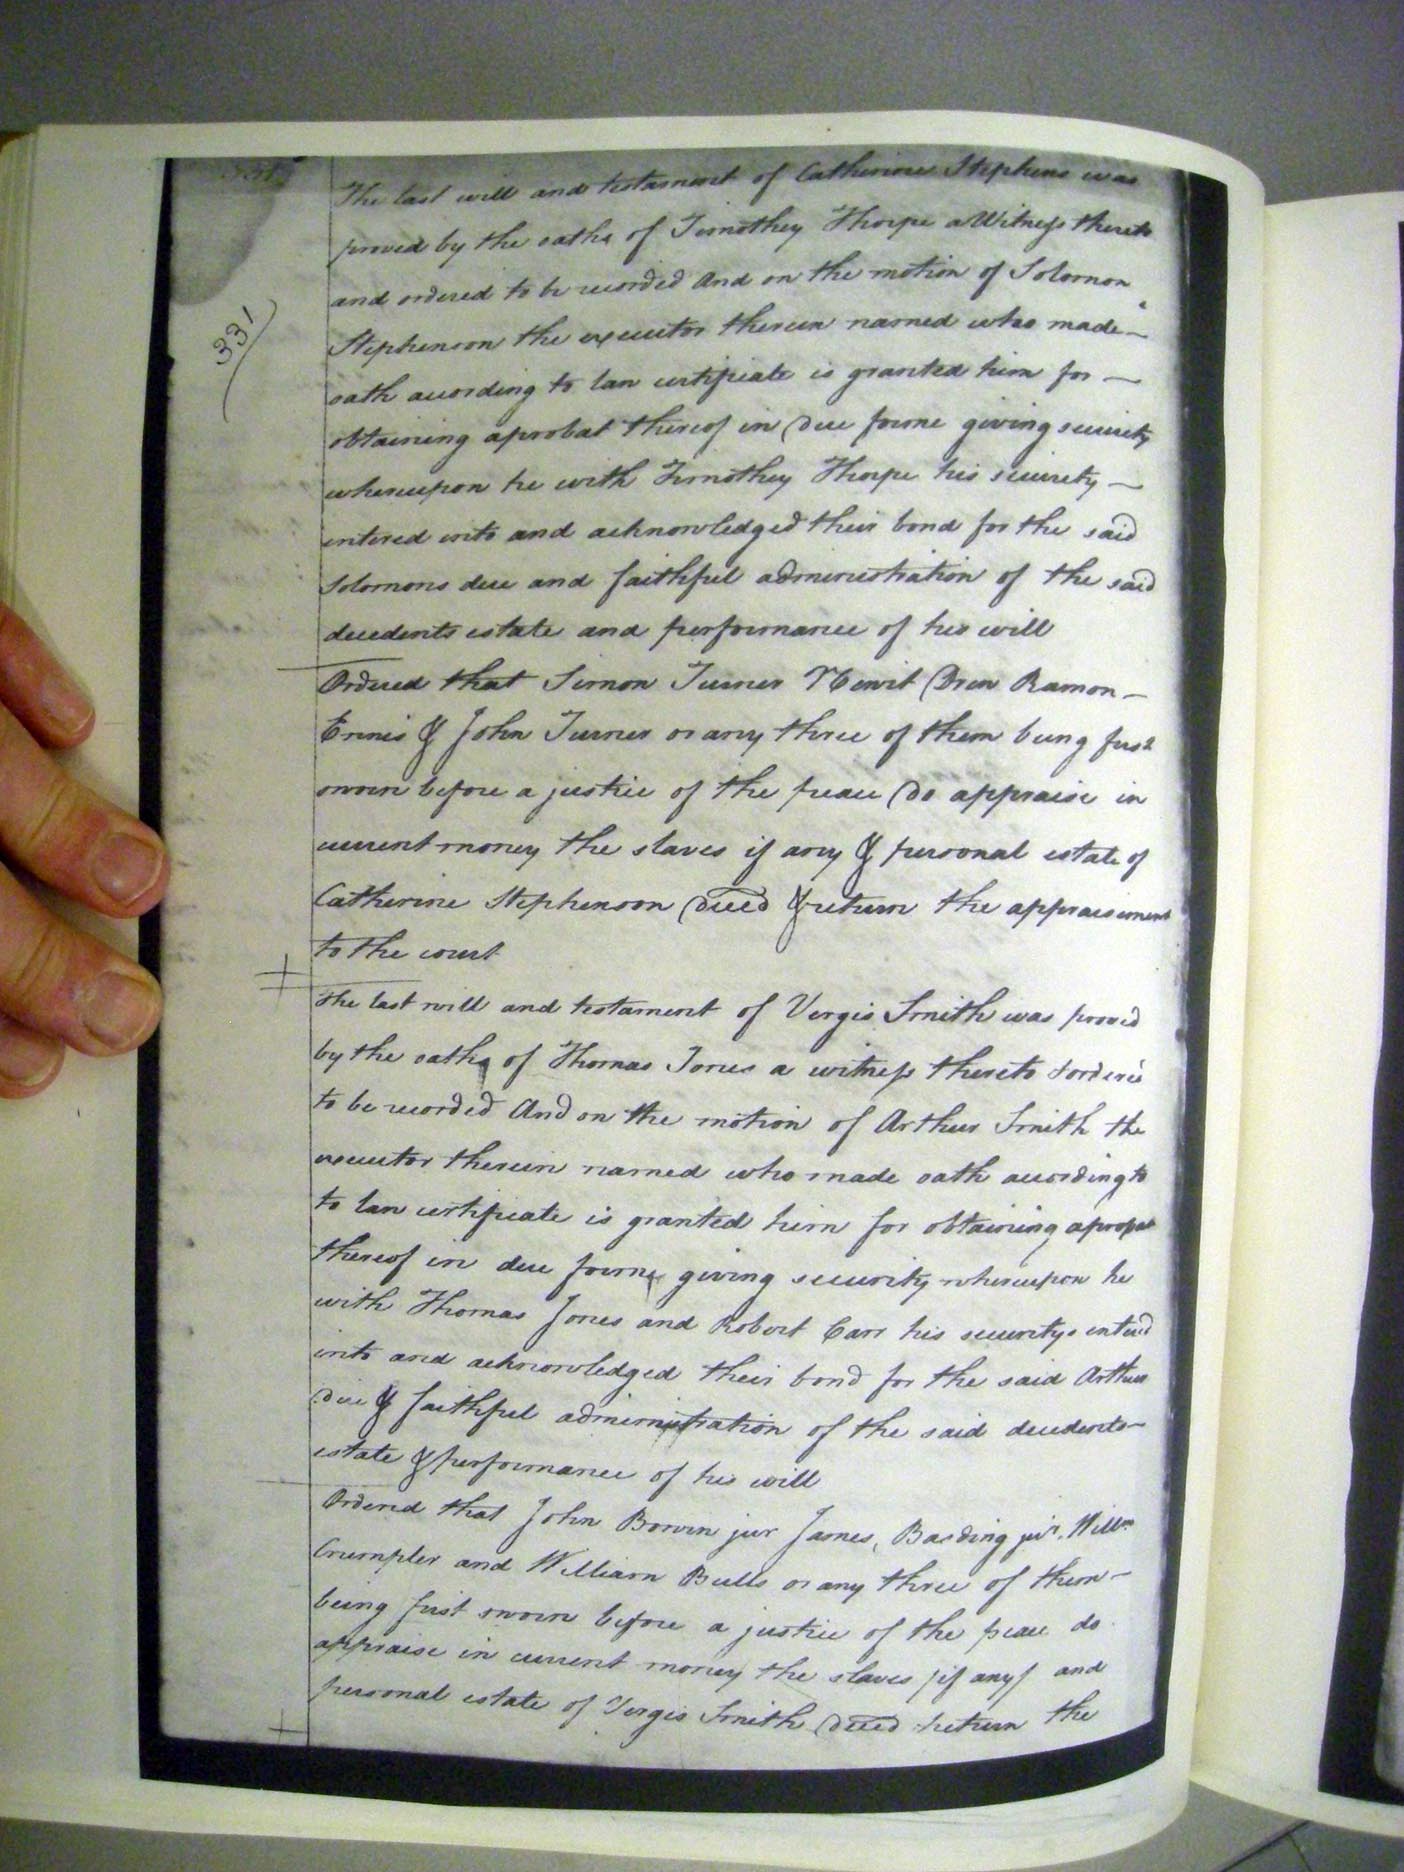 331
The last will and testament of Catherine Stephens was
proved by the oaths of Timothey Thorpe a Witness thereto
and ordered to be recorded And on the motion of Solomon
Stephenson the executor therein named who made
oath according to law certificate is granted him for
obtaining aprobat thereof in due forme giving security
whereupon he with Timothey Thorpe his security
entered into and acknowledged their bond for the said
Solomons due and faithful administration of the said
decedents estate and performance of his will
Ordered that Simon Turner Newit Drew Ramon
Ennis & John Turner or any three of them being first
sworn before a justice of the peace do appraise in
current money the slaves if any & personal estate of
Catherine Stephenson Deced & return the appraisement
to the court
The last will and testament of Vergis Smith was proved
by the oaths of Thomas Jones a witness thereto & ordered
to be recorded And on the motion of Arthur Smith the
executor therein named who made oath according to
to law certificate is granted him for obtaining aprobat
thereof in due forme giving security whereupon he
with Thomas Jones and Robert Carr his securitys entered
into and acknowledged their bond for the said Arthur
due & faithful administration of the said decedents
estate & performance of his will
Ordered that John Bowin jur James Barding jur. Willm
Crumpler and William Bulls or any three of them
being first sworn before a justice of the peace do
appraise in current money the slaves /if any/ and
personal estate of Vergis Smith Deced & return the